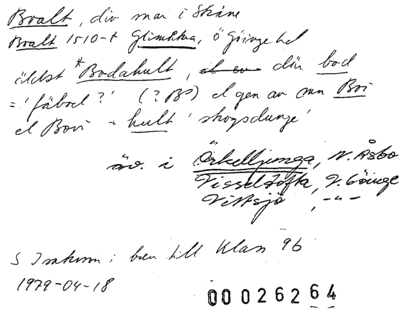 Bralt, div nar i Skåne
Bralt 1510-t Glimåkra, Ö Göinge hd
äldst *Bodahult, där bod
= 'fäbod?' (? BP) el gen av mn Boi
el Bovi - hult 'skogsdunge'
äv. i Örkelljunga, N. Åsbo
Visseltofta, V. Göinge
Vittsjö, -"-
S Isaksson i brev till Klass 96
1979-04-18
00026264